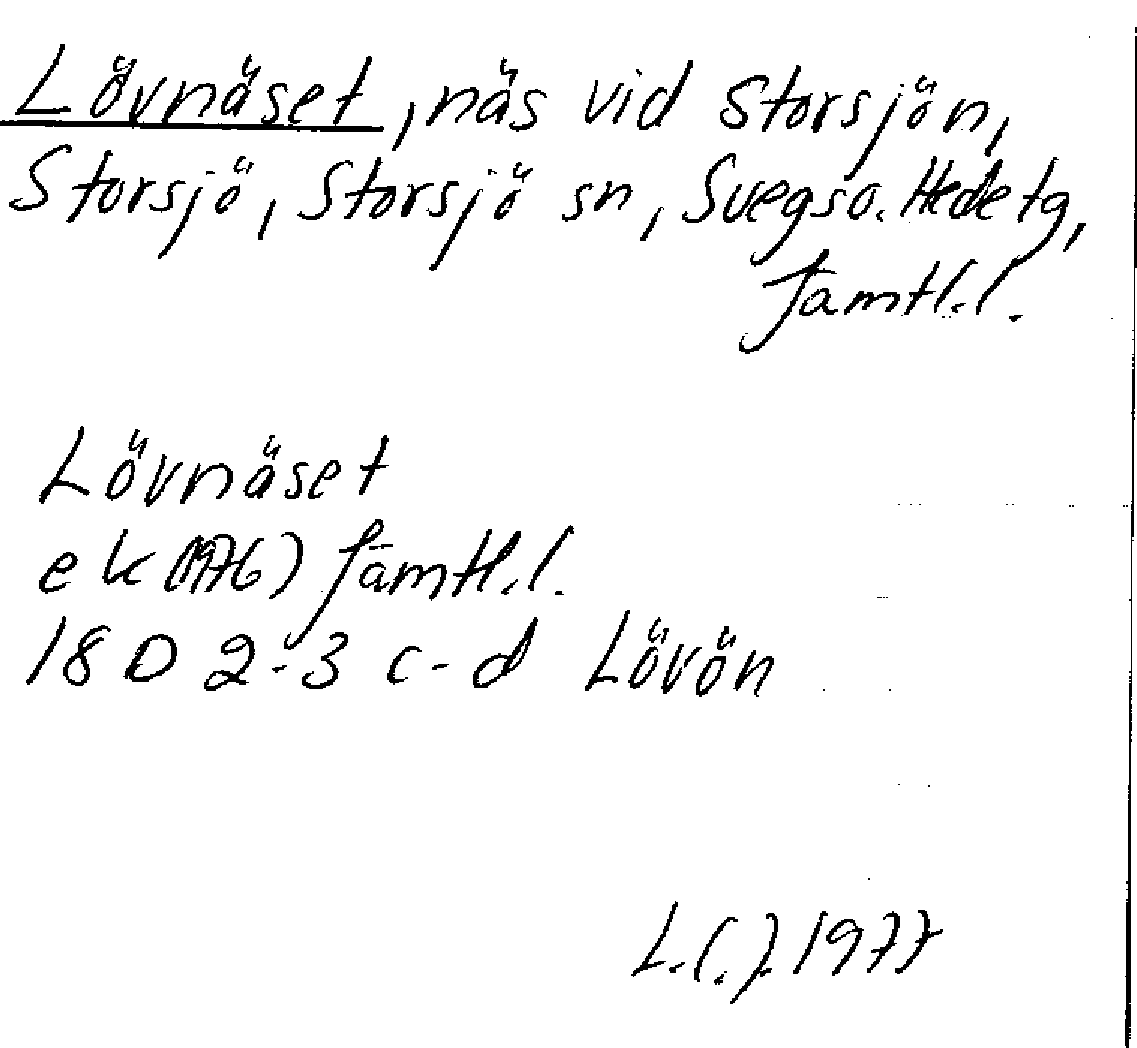 Lövnäset, näs vid Storsjön,
Storsjö, Storsjö sn, Svegs o. Hede tg,
Jämtl.l.
Lövnäset
ek (1976) Jämtl.l.
18 D 2-3 c-d Lövön
1977